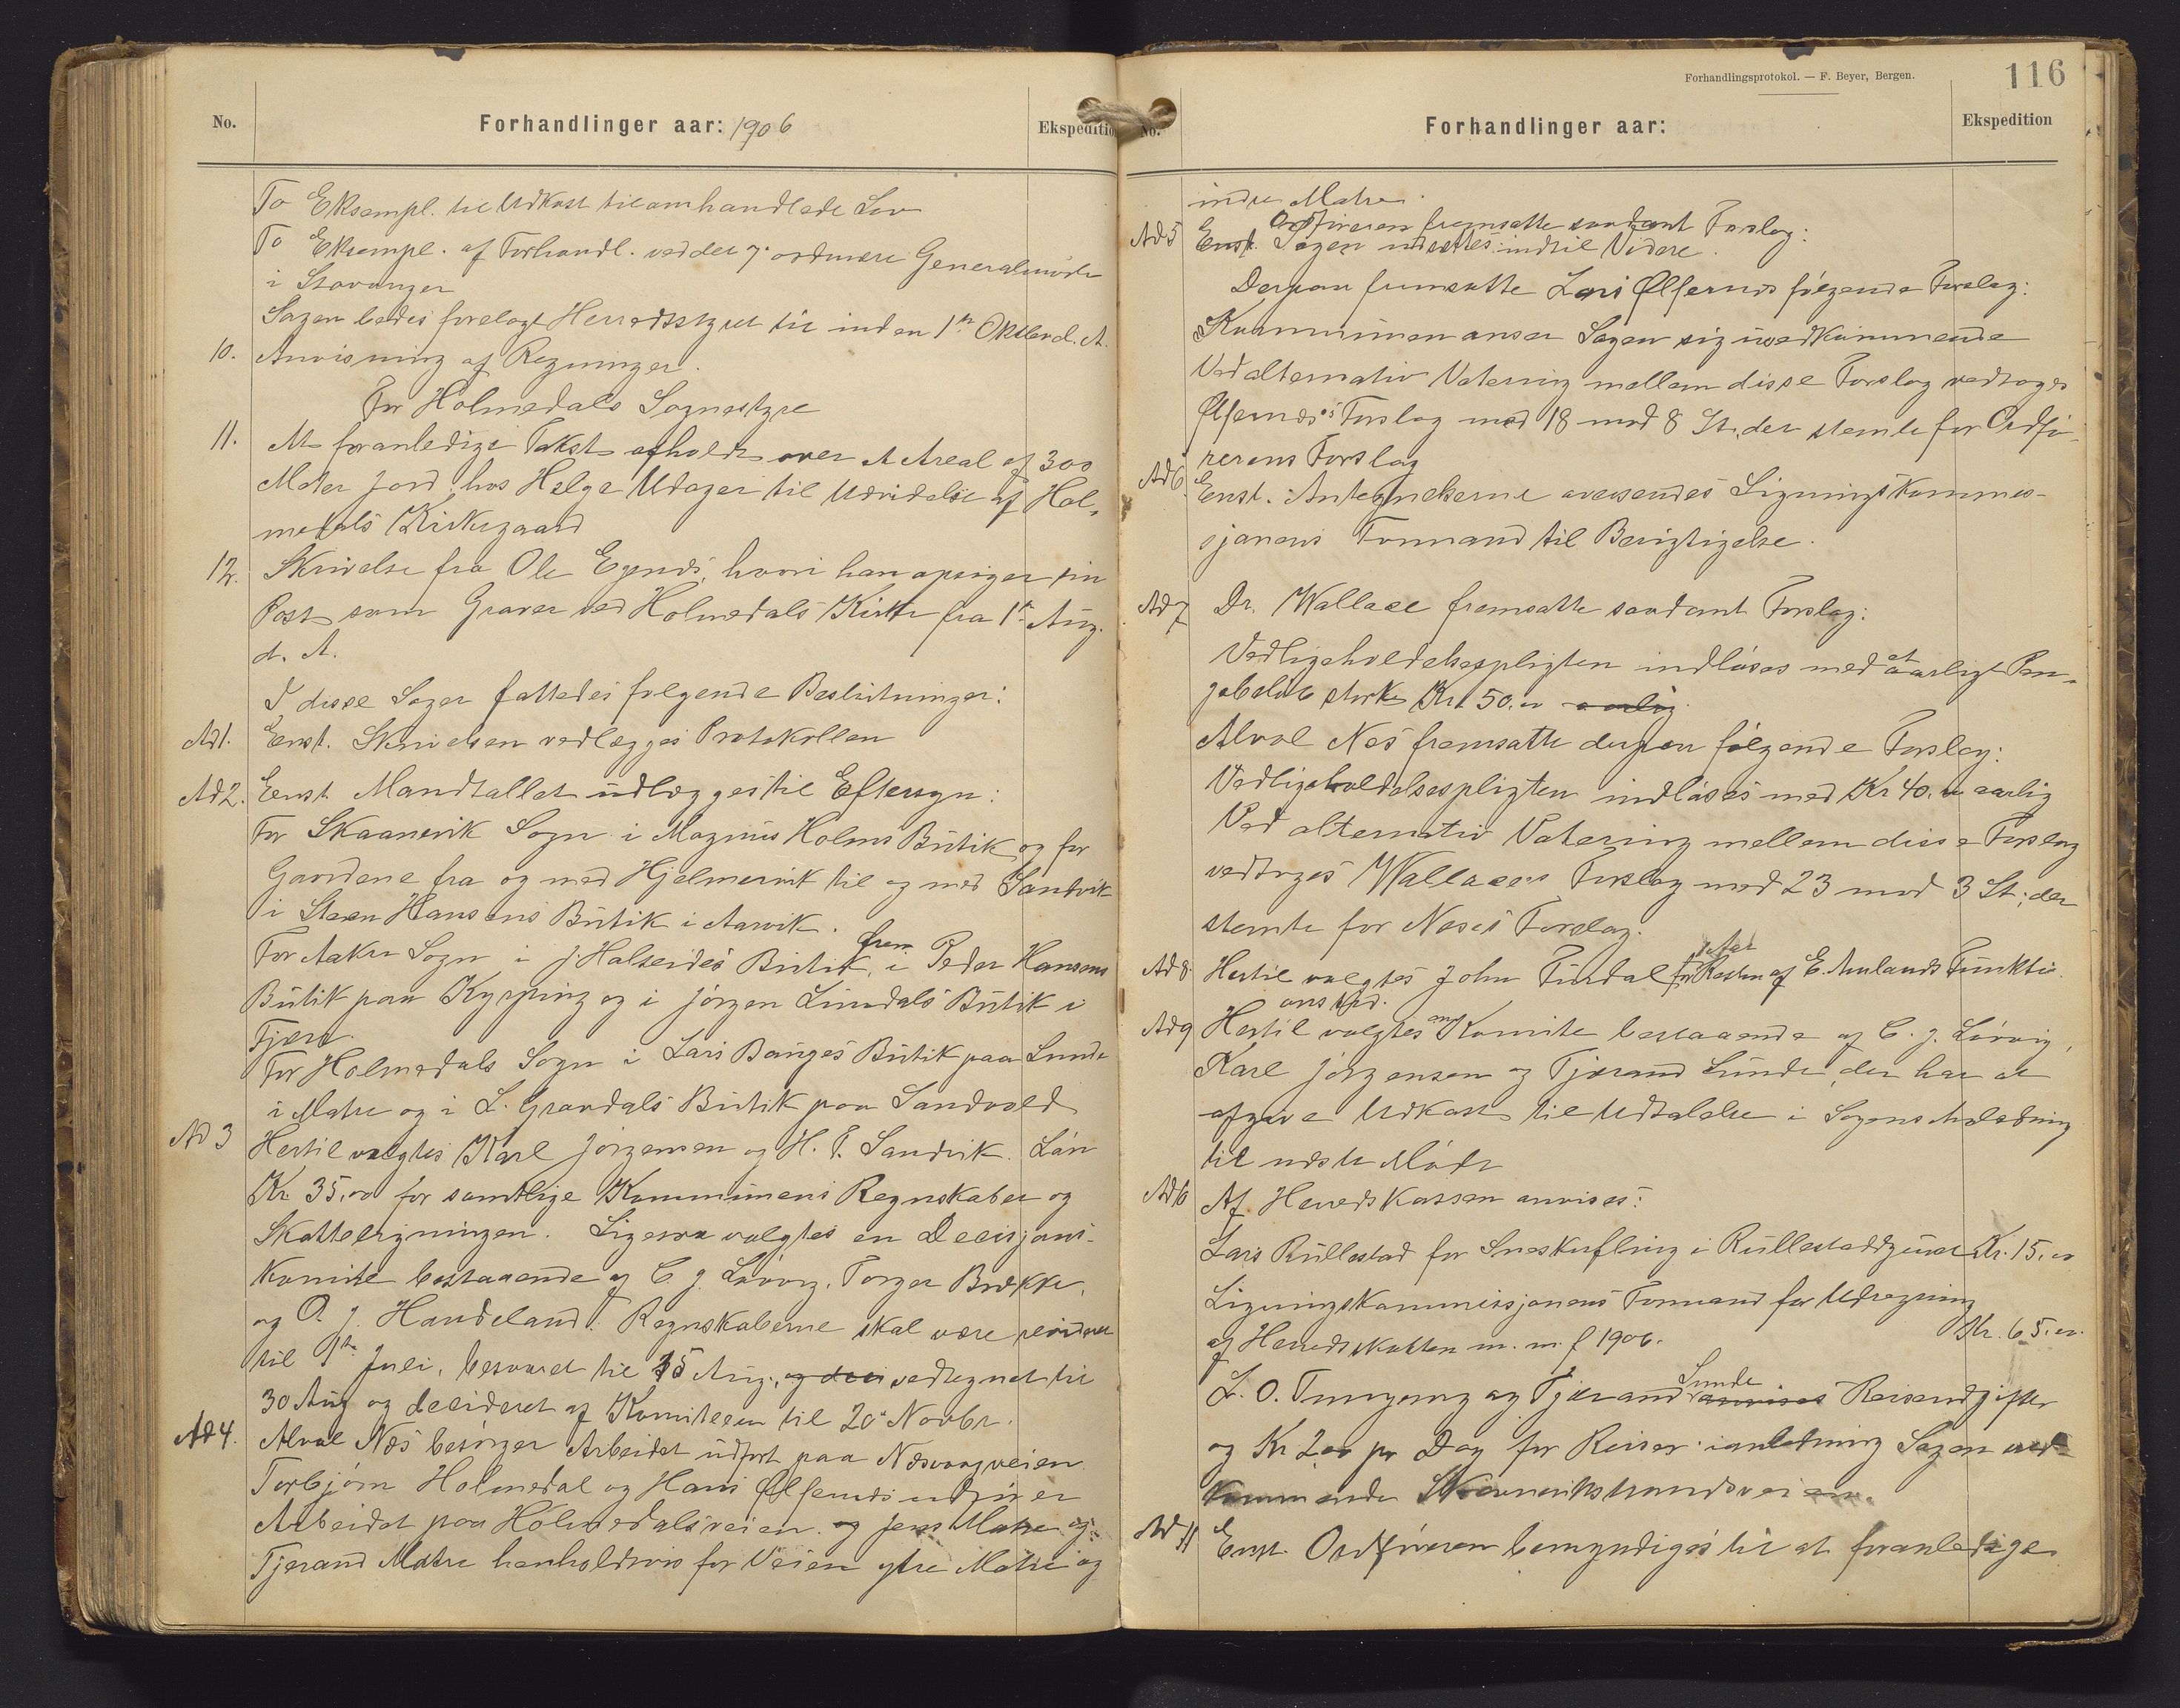 No.
Forhandlinger aar: 1906
Ekspeditio
To Eksempl. til Udkast til omhandlede Lov
To Eksempl. af Forhandl. ved det 7. ordinære Generalmøde
i Stavanger
Sagen bedes forelagt Herredsstyret til inden 1ste Oktober d. A.
10. Anvisning af Regninger.
For Holmedals Sognestyre
11. At foranledige Takst afholdt over et Areal af 300
Meter Jord hos Helge Udager til Udvidelse af Hol-
medals Kirkegaard
12. Skrivelse fra Ole Egnds, hvori han opsiger sin
Post som Graver ved Holmedals Kirke fra 1ste Aug.
d. A.
I disse Sager fattedes følgende Beslutninger:
Ad 1. Enst. Skrivelsen vedlægges Protokollen
Ad 2. Enst. Mandtallet udlægges til Eftersyn:
For Skaanevik Sogn i Magnus Holms Butik og for
Gaardene fra og med Hjelmervik til og med Sandvik
i Steen Hansens Butik i Aarvik.
For Aakre Sogn i J. Halseides Butik, frem i Peder Hansens
Butik paa Kyrping og i Jørgen Lundals Butik i
Fjæra
For Holmedals Sogn i Lars Bauges Butik paa Lunde
i Matre og i L. Grandals Butik paa Sandvold
Ad 3 Hertil valgtes Karl Jørgensen og H. T. Sandvik. Løn
Kr 35.00 for samtlige Kommunens Regnskaber og
Skatteligningen. Ligesaa valgtes en Decisjons-
komite bestaaende af C. J. Løvvig, Torger Brekke,
og O. J. Handeland. Regnskaberne skal være revideret
til 1ste Juli, besvaret til 15 Aug., og deci vedtegnet til
30 Aug og decideret af Komiteen til 20de Novbr.
Ad 4. Alval Næs besørger Arbeidet udført paa Næsvaagveien
Torbjørn Holmedal og Hans Ølfernds udfører
Arbeidet paa Holmedalsveien og Jens Matre og
Tjerand Matre henholdsvis for Veien ytre Matre og
Forhandlingsprotokol. — F. Beyer, Bergen.
116
No.
Forhandlinger aar:
Ekspedition
indre Matre.
Ad 5 Ordføreren fremsatte saadant Forslag:
Enst. Sagen udsættes indtil Videre.
Derpaa fremsatte Lars Ølfernds følgende Forslag:
Kommunen anser Sagen sig uvedkommende
Ved alternativ Votering mellem disse Forslag vedtoges
Ølfernds's Forslag med 18 mod 8 St. der stemte for Ordfø-
rerens Forslag
Ad 6. Enst. Antegnelserne oversendes Ligningskommis-
sjonens Formand til Berigtigelse.
Ad 7 Dr. Wallace fremsatte saadant Forslag:
Vedligeholdelsespligten indløses med et aarligt Pen-
gebeløb stort Kr 50.00 aarlig.
Alval Nes fremsatte derpaa følgende Forslag:
Vedligeholdelsespligten indløses med Kr 40.00 aarlig
Ved alternativ Votering mellem disse Forslag
vedtoges Wallaces Forslag med 23 mod 3 St. der
stemte for Neses Forslag.
Ad 8. Hertil valgtes John Tindal for Resten af E. Aulands Funktio
ons tid.
Ad 9 Hertil valgtes en Komite bestaaende af C. J. Løvvig,
Karl Jørgensen og Tjærand Lunde, der har at
afgive Udkast til Udtalelse i Sagens Anledning
til næste Møde
Ad 10 Af Herredskassen anvises:
Lars Rullestad for Sneskufling i Rullestadgjuvet Kr. 15.00
Ligningskommissjonens Formand for Udregning
af Herredsskatten m. m. f 1906. Kr. 65.00
L. O. Tungesvig og Tjærand Lunde anvises Reiseudgifter
og Kr 2.00 pr Dag for Reiser i anledning Sagen ved-
kommende Skaanevikstrandsveien.
Ad 11 Enst. Ordføreren bemyndiges til at foranledige